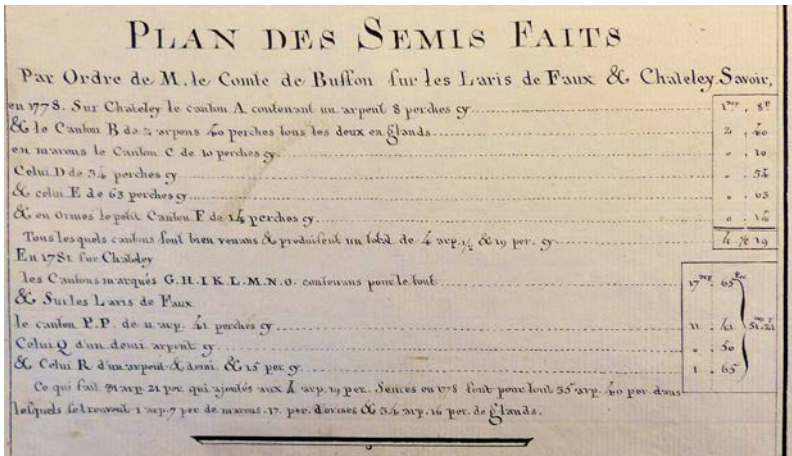 PLAN DES SEMIS FAITS
Par Ordre de M. le Comte de Buffon sur les Laris de Faux & Chateley Savoir,
en 1778. Sur Chateley le canton A contenant un arpent 8 perches cy 1 arp , 8 P
& le Canton B de 2 arpens 40 perches tous les deux en glands 2 , 40
en marons le Canton C de 10 perches cy " , 10
Celui D de 34 perches cy " , 34
& celui E de 63 perches cy " , 63
& en ormes le petit Canton F de 14 perches cy " , 14
Tous lesquels cantons sont bien venans & produisent un total de 4 arp. ½ & 19 per. cy 4 ½ 19
En 1781 sur Chateley
les Cantons marqués G.H.I.K.L.M.N.O. contenans pour le tout 17 arp . 65 per
& Sur les Laris de Faux
le canton P.P. de 11 arp. 41 perches cy 11 . 41 31. 21
Celui Q d'un demi arpent cy " . 50
& Celui R d'un arpent & demi & 15 per cy 1 . 65
Ce qui fait 31 arp. 21 per. qui ajoutés aux 4 arp. 19 per. Semés en 1778 font pour tout 35 arp. 40 per. dans
lesquels se trouvent 1 arp. 7 per de marons. 17. per. d'ormes & 34 arp. 16 per. de glands.